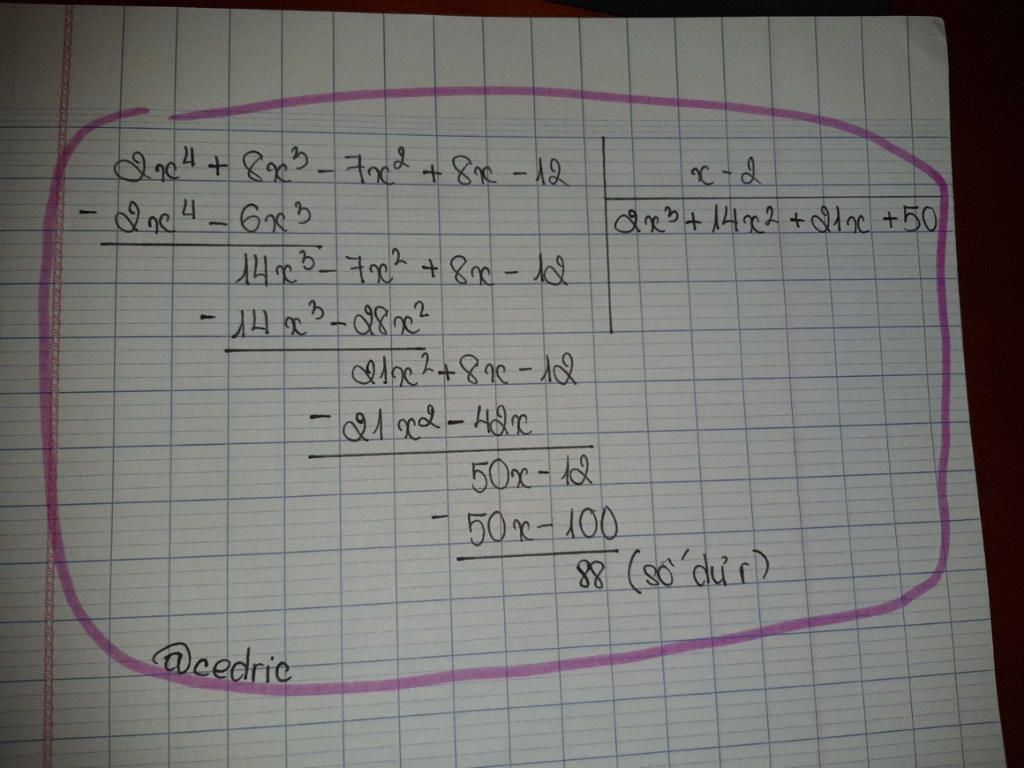 2x⁴ + 8x³ - 7x² + 8x - 12 | x - 2
- 2x⁴ - 6x³ | 2x³ + 14x² + 21x + 50
14x³ - 7x² + 8x - 12
- 14x³ - 28x²
21x² + 8x - 12
- 21x² - 42x
50x - 12
- 50x - 100
88 (số dư r)
@cedric